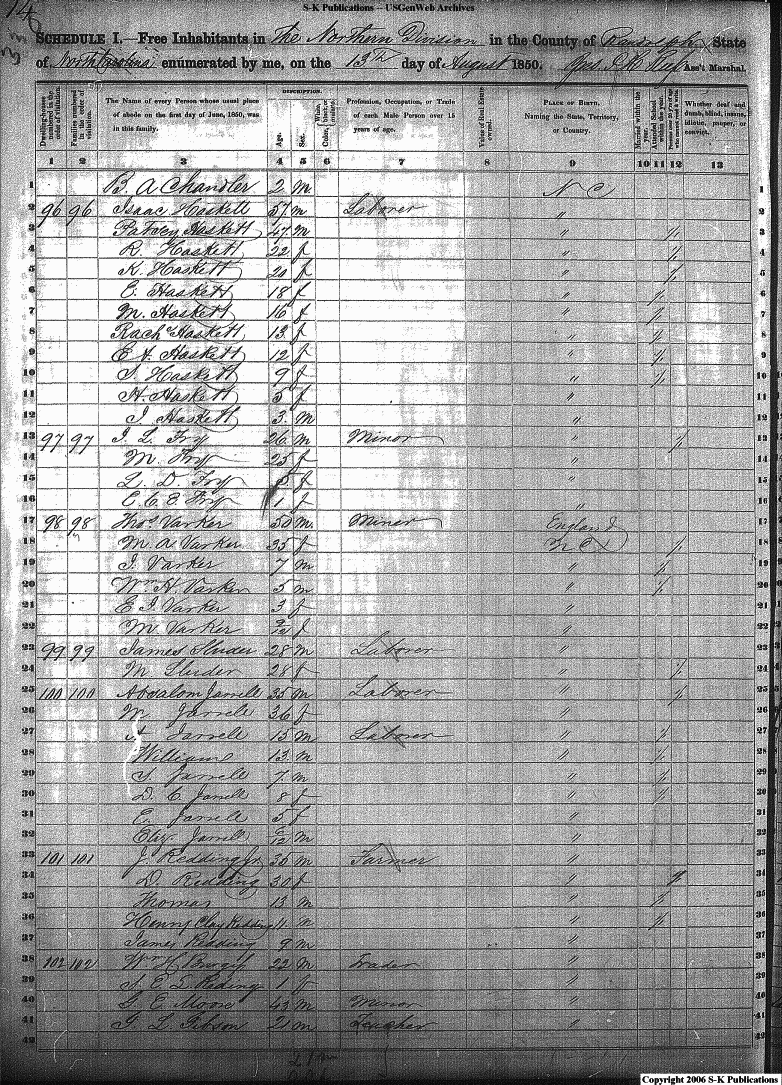 S-K Publications -- USGenWeb Archives
14
SCHEDULE I.—Free Inhabitants in The Northern Division in the County of Randolph State
of North Carolina enumerated by me, on the 13th day of August 1850. Ass't Marshal.
DESCRIPTION.
Dwelling-houses numbered in the order of visitation.
Families numbered in the order of visitation.
The Name of every Person whose usual place of abode on the first day of June, 1850, was in this family.
Age.
Sex.
White, black, or mulatto.
Profession, Occupation, or Trade of each Male Person over 15 years of age.
Value of Real Estate owned.
PLACE OF BIRTH. Naming the State, Territory, or Country.
Married within the year.
Attended School within the year.
Persons over 20 y'rs of age who cannot read & write.
Whether deaf and dumb, blind, insane, idiotic, pauper, or convict.
1 2 3 4 5 6 7 8 9 10 11 12 13
1 B. A Chandler 2 m N C 1
2 96 96 Isaac Haskett 57 m Laborer " 2
3 Haskett 47 " / 3
4 R. Haskett 22 f " / 4
5 K. Haskett 20 f " / 5
6 E. Haskett 18 f " / 6
7 M. Haskett 16 f " / 7
8 Rach Haskett 13 f " / 8
9 E A. Haskett 12 f " / 9
10 S. Haskett 9 f " / 10
11 A. Haskett 5 f " 11
12 I Haskett 3 m " 12
13 97 97 I. L. Fry 26 m Minor " / 13
14 M. Fry 25 f " 14
15 L. D. Fry 5 f " 15
16 E. C. E Fry 1 f " 16
17 98 98 Thos Varker 50 m Miner England 17
18 M. A Varker 35 f N C / 18
19 I. Varker 7 m " / 19
20 Wm H Varker 5 m " / 20
21 E I Varker 3 f " 21
22 M Varker 9/12 f " 22
23 99 99 James Sluder 28 m Laborer " 23
24 M Sluder 28 f " / 24
25 100 100 Absalom Jarrell 35 m Laborer " / 25
26 M Jarrell 36 f " 26
27 A Jarrell 15 m Laborer " / 27
28 William 13 m " / 28
29 S. Jarrell 7 m " / 29
30 D. C. Jarrell 8 f " / 30
31 E. Jarrell 5 f " 31
32 Clay Jarrell 9/12 m " 32
33 101 101 J Redding Jr 35 m Farmer " 33
34 D. Redding 30 f " / 34
35 Thomas 13 m " / 35
36 Henry Clay Redding 11 m " / 36
37 James Redding 9 m " 37
38 102 102 Wm H Burgis 22 m Trader " 38
39 S. E L Reding 1 f " 39
40 G E Moore 43 m Minor " 40
41 G L Gibson 21 m Teacher " 41
42 42
Copyright 2006 S-K Publications